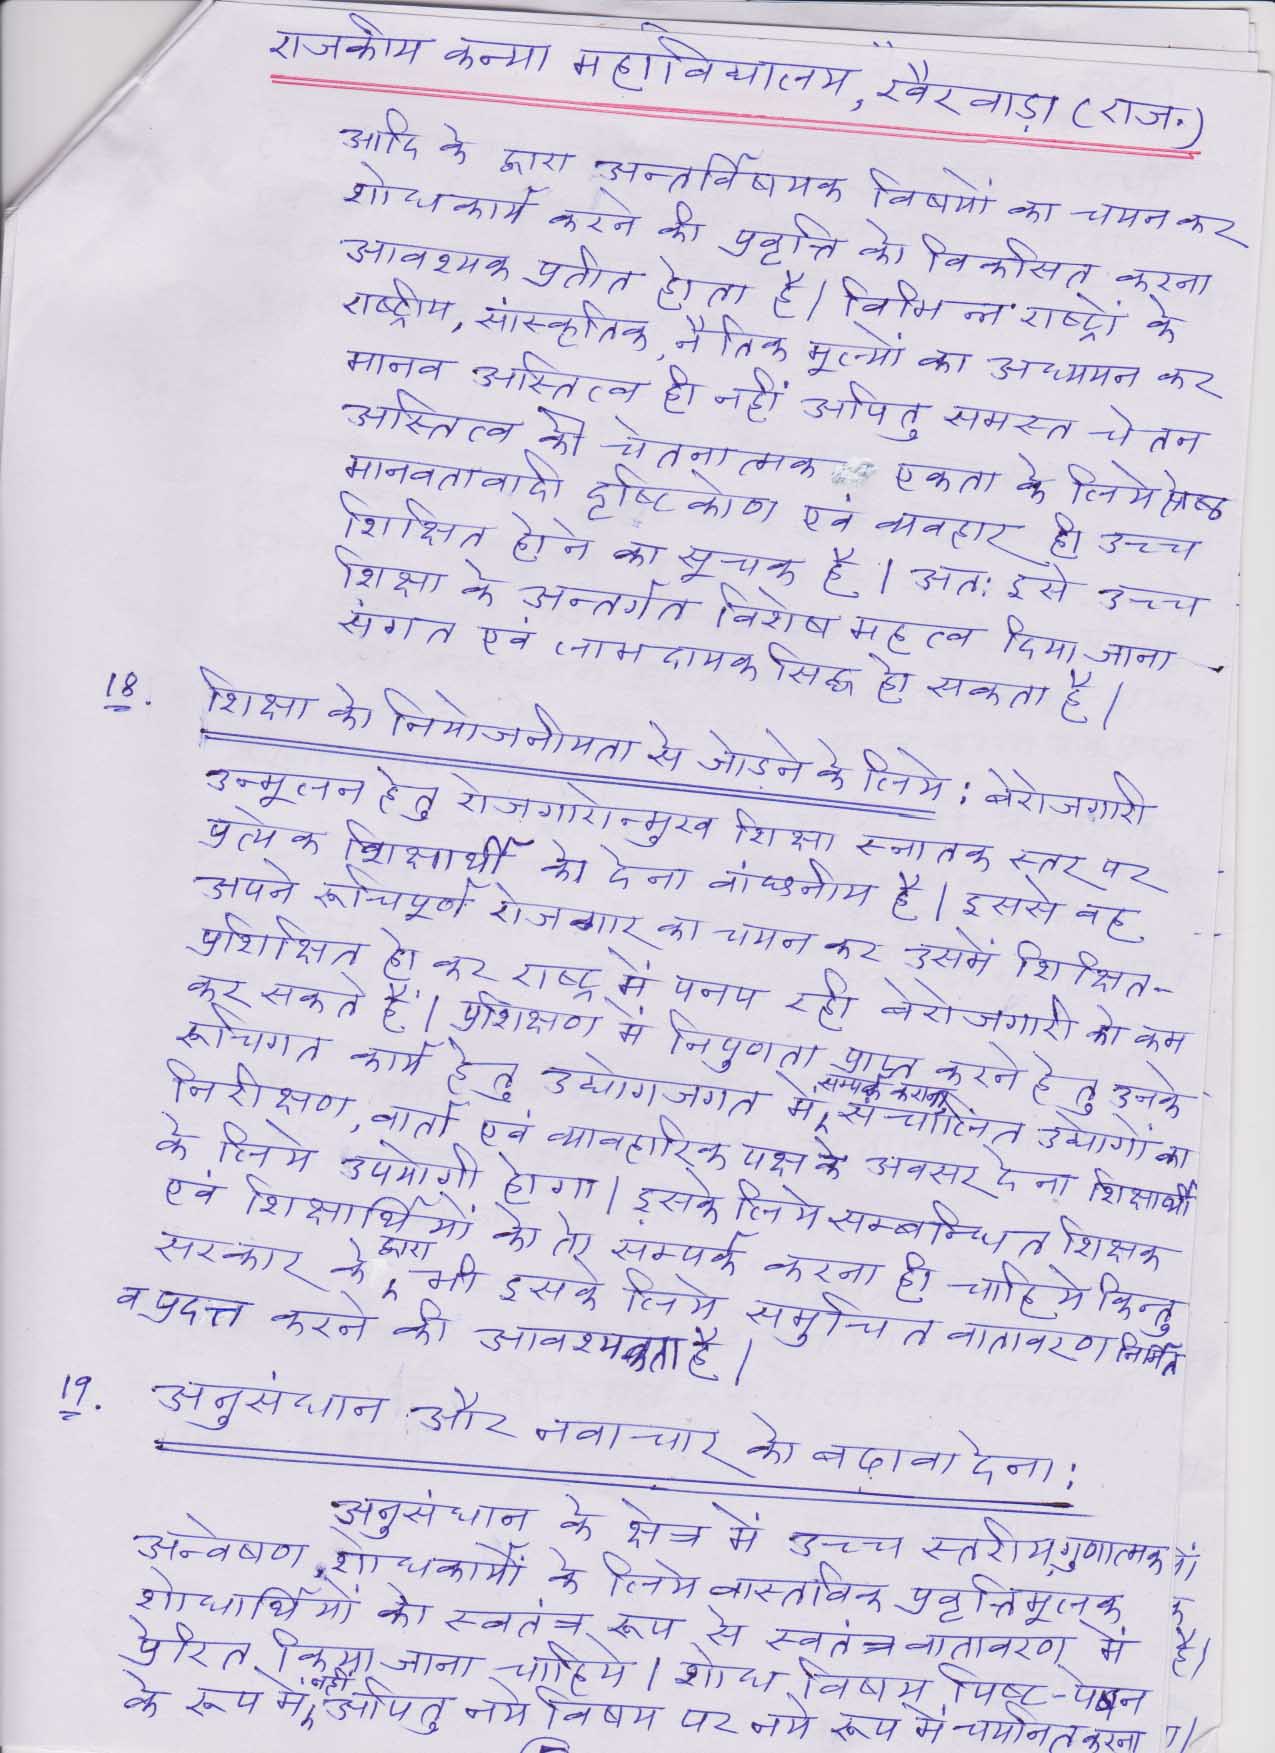 राजकीय कन्या महाविद्यालय, खैरवाड़ा (राज.)
आदि के द्वारा अन्तर्विषयक विषयों का चयन कर
शोधकार्य करने की प्रवृत्ति को विकसित करना
आवश्यक प्रतीत होता है। विभिन्न राष्ट्रों के
राष्ट्रीय, सांस्कृतिक, नैतिक मूल्यों का अध्ययन कर
मानव अस्तित्व ही नहीं अपितु समस्त चेतन
अस्तित्व की चेतनात्मक एकता के लिये श्रेष्ठ
मानवतावादी दृष्टिकोण एवं व्यवहार ही उच्च
शिक्षित होने का सूचक है। अत: इसे उच्च
शिक्षा के अन्तर्गत विशेष महत्व दिया जाना
संगत एवं लाभदायक सिद्ध हो सकता है।
18. शिक्षा को नियोजनीयता से जोड़ने के लिये : बेरोजगारी
उन्मूलन हेतु रोजगारोन्मुख शिक्षा स्नातक स्तर पर
प्रत्येक शिक्षार्थी को देना वांछनीय है। इससे वह
अपने रूचिपूर्ण रोजगार का चयन कर उसमें शिक्षित-
प्रशिक्षित हो कर राष्ट्र में पनप रही बेरोजगारी को कम
कर सकते हैं। प्रशिक्षण में निपुणता प्राप्त करने हेतु उनके
रूचिगत कार्य हेतु उद्योगजगत में सम्पर्क कराना, संचालित उद्योगों का
निरीक्षण, वार्ता एवं व्यावहारिक पक्ष के अवसर देना शिक्षार्थी
के लिये उपयोगी होगा। इसके लिये सम्बन्धित शिक्षक
एवं शिक्षार्थियों को तो सम्पर्क करना ही चाहिये किन्तु
सरकार के द्वारा भी इसके लिये समुचित वातावरण निर्मित
व प्रदत्त करने की आवश्यकता है।
19. अनुसंधान और नवाचार को बढ़ावा देना :
अनुसंधान के क्षेत्र में उच्च स्तरीय, गुणात्मक
अन्वेषण, शोधकार्यों के लिये वास्तविक प्रवृत्तिमूलक
शोधार्थियों को स्वतंत्र रूप से स्वतंत्र वातावरण में
प्रेरित किया जाना चाहिये। शोध विषय पिष्ट-पेषन
के रूप में नहीं अपितु नये विषय पर नये रूप में चयनित करना